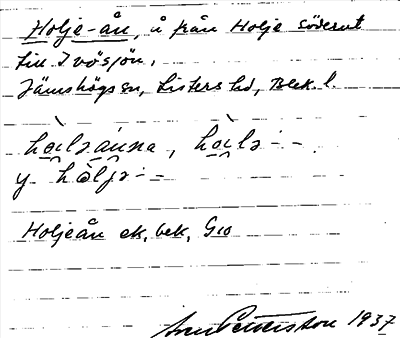 Holje-ån, å från Holje söderut
till Ivösjön,
Jämshögs sn, Listers hd, Blek. l.
hɑ̀ilsánna, hɑ̀ils - -
y. hòljə - -
Holjeån ek, bek, G10
Pettersson 1937